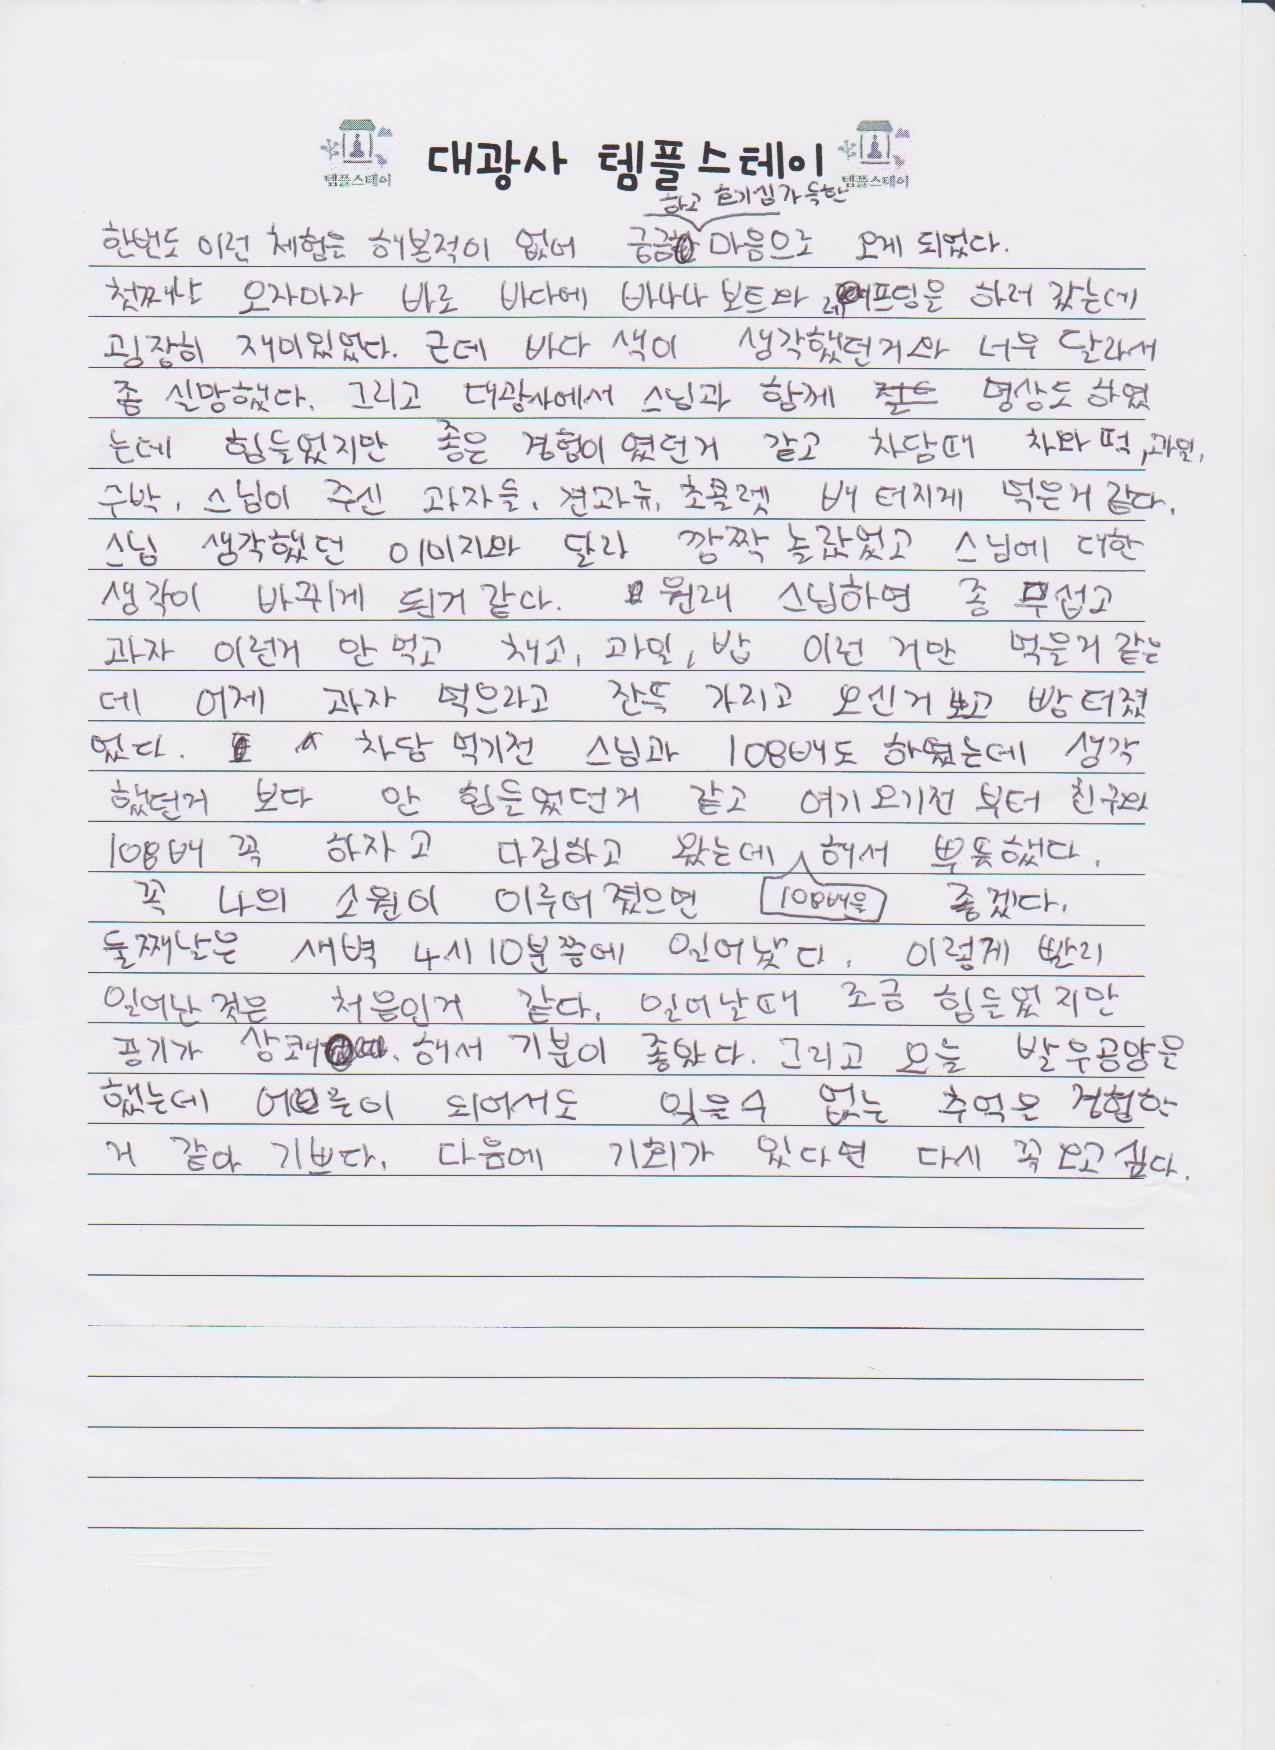 템플스테이
대광사 템플스테이
템플스테이
하고 호기심가득한
한번도 이런 체험은 해본적이 없어 궁금 마음으로 오게 되었다.
첫째날 오자마자 바로 바다에 바나나 보트와 래프팅을 하러 갔는데
굉장히 재미있었다. 근데 바다 색이 생각했던거와 너무 달라서
좀 실망했다. 그리고 대광사에서 스님과 함께 명상도 하였
는데 힘들었지만 좋은 경험이 였던거 같고 차담때 차와 떡, 과일,
수박, 스님이 주신 과자들, 견과류, 초콜렛 배 터지게 먹은거 같다.
스님 생각했던 이미지와 달라 깜짝 놀랐었고 스님에 대한
생각이 바뀌게 된거 같다. 원래 스님하면 좀 무섭고
과자 이런거 안 먹고 채고, 과일, 밥 이런 거만 먹을거 같은
데 어제 과자 먹으라고 잔뜩 가리고 오신거 보고 빵 터졌
었다. 차담 먹기전 스님과 108배도 하였는데 생각
했던거 보다 안 힘들었던거 같고 여기오기전 부터 친구와
108배 꼭 하자고 다짐하고 왔는데 해서 뿌듯했다.
꼭 나의 소원이 이루어졌으면 108배을 좋겠다.
둘째날은 새벽 4시 10분쯤에 일어났다. 이렇게 빨리
일어난 것은 처음인거 같다. 일어날때 조금 힘들었지만
공기가 상쾌 해서 기분이 좋았다. 그리고 오늘 발우공양을
했는데 어른이 되어서도 잊을수 없는 추억을 경험한
거 같아 기쁘다. 다음에 기회가 있다면 다시 꼭 오고 싶다.